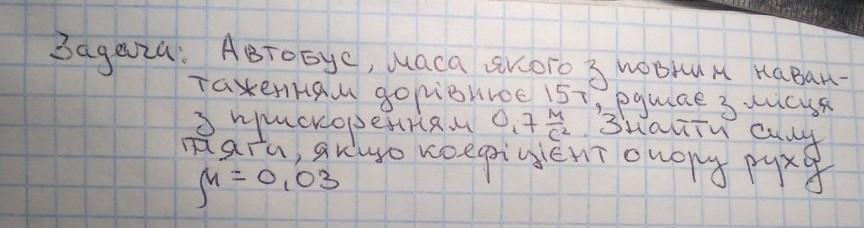 Задача: Автобус, маса якого з повним наван-
таженням дорівнює 15т, рушає з місця
з прискоренням 0,7 м/с². Знайти силу
тяги, якщо коефіцієнт опору руху
μ = 0,03